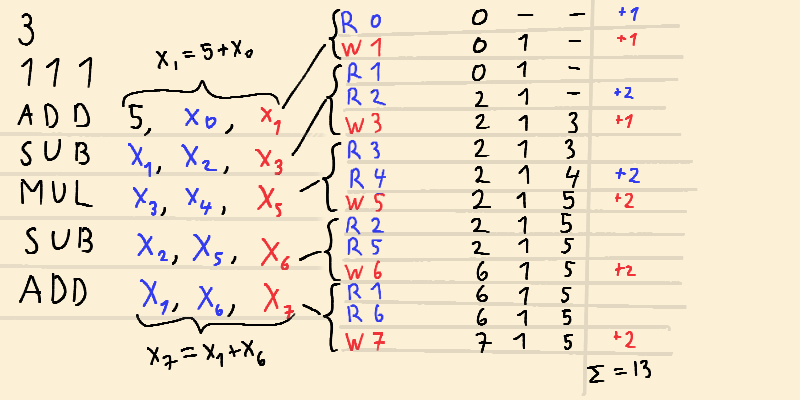 3
1 1 1
x₁ = 5 + x₀
ADD 5, x₀, x₁
SUB x₁, x₂, x₃
MUL x₃, x₄, x₅
SUB x₂, x₅, x₆
ADD x₁, x₆, x₇
x₇ = x₁ + x₆
R 0 0 – – +1
W 1 0 1 – +1
R 1 0 1 –
R 2 2 1 – +2
W 3 2 1 3 +1
R 3 2 1 3
R 4 2 1 4 +2
W 5 2 1 5 +2
R 2 2 1 5
R 5 2 1 5
W 6 6 1 5 +2
R 1 6 1 5
R 6 6 1 5
W 7 7 1 5 +2
Σ = 13